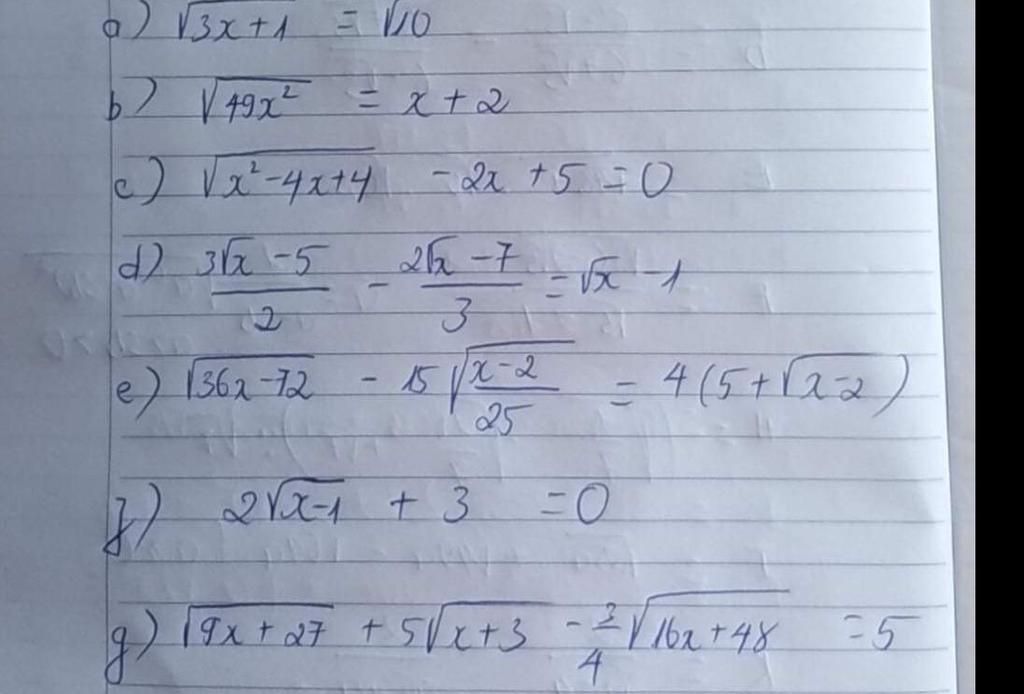 a) √(3x+1) = √10
b) √(49x²) = x + 2
c) √(x²-4x+4) - 2x + 5 = 0
d) (3√x - 5)/2 - (2√x - 7)/3 = √x - 1
e) √(36x-72) - 15√((x-2)/25) = 4(5+√(x-2))
f) 2√(x-1) + 3 = 0
g) √(9x+27) + 5√(x+3) - 3/4√(16x+48) = 5